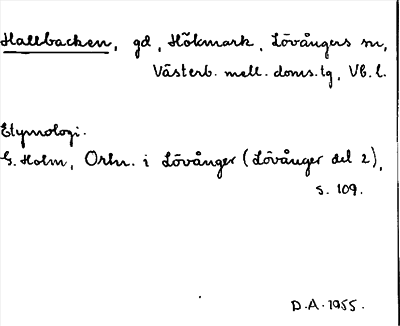 Hallbacken, gd, Hökmark, Lövångers sn,
Västerb. mell. doms.tg, Vb. l.
Etymologi.
G. Holm, Ortn. i Lövånger (Lövånger del 2),
s. 109.
D.A. 1955.